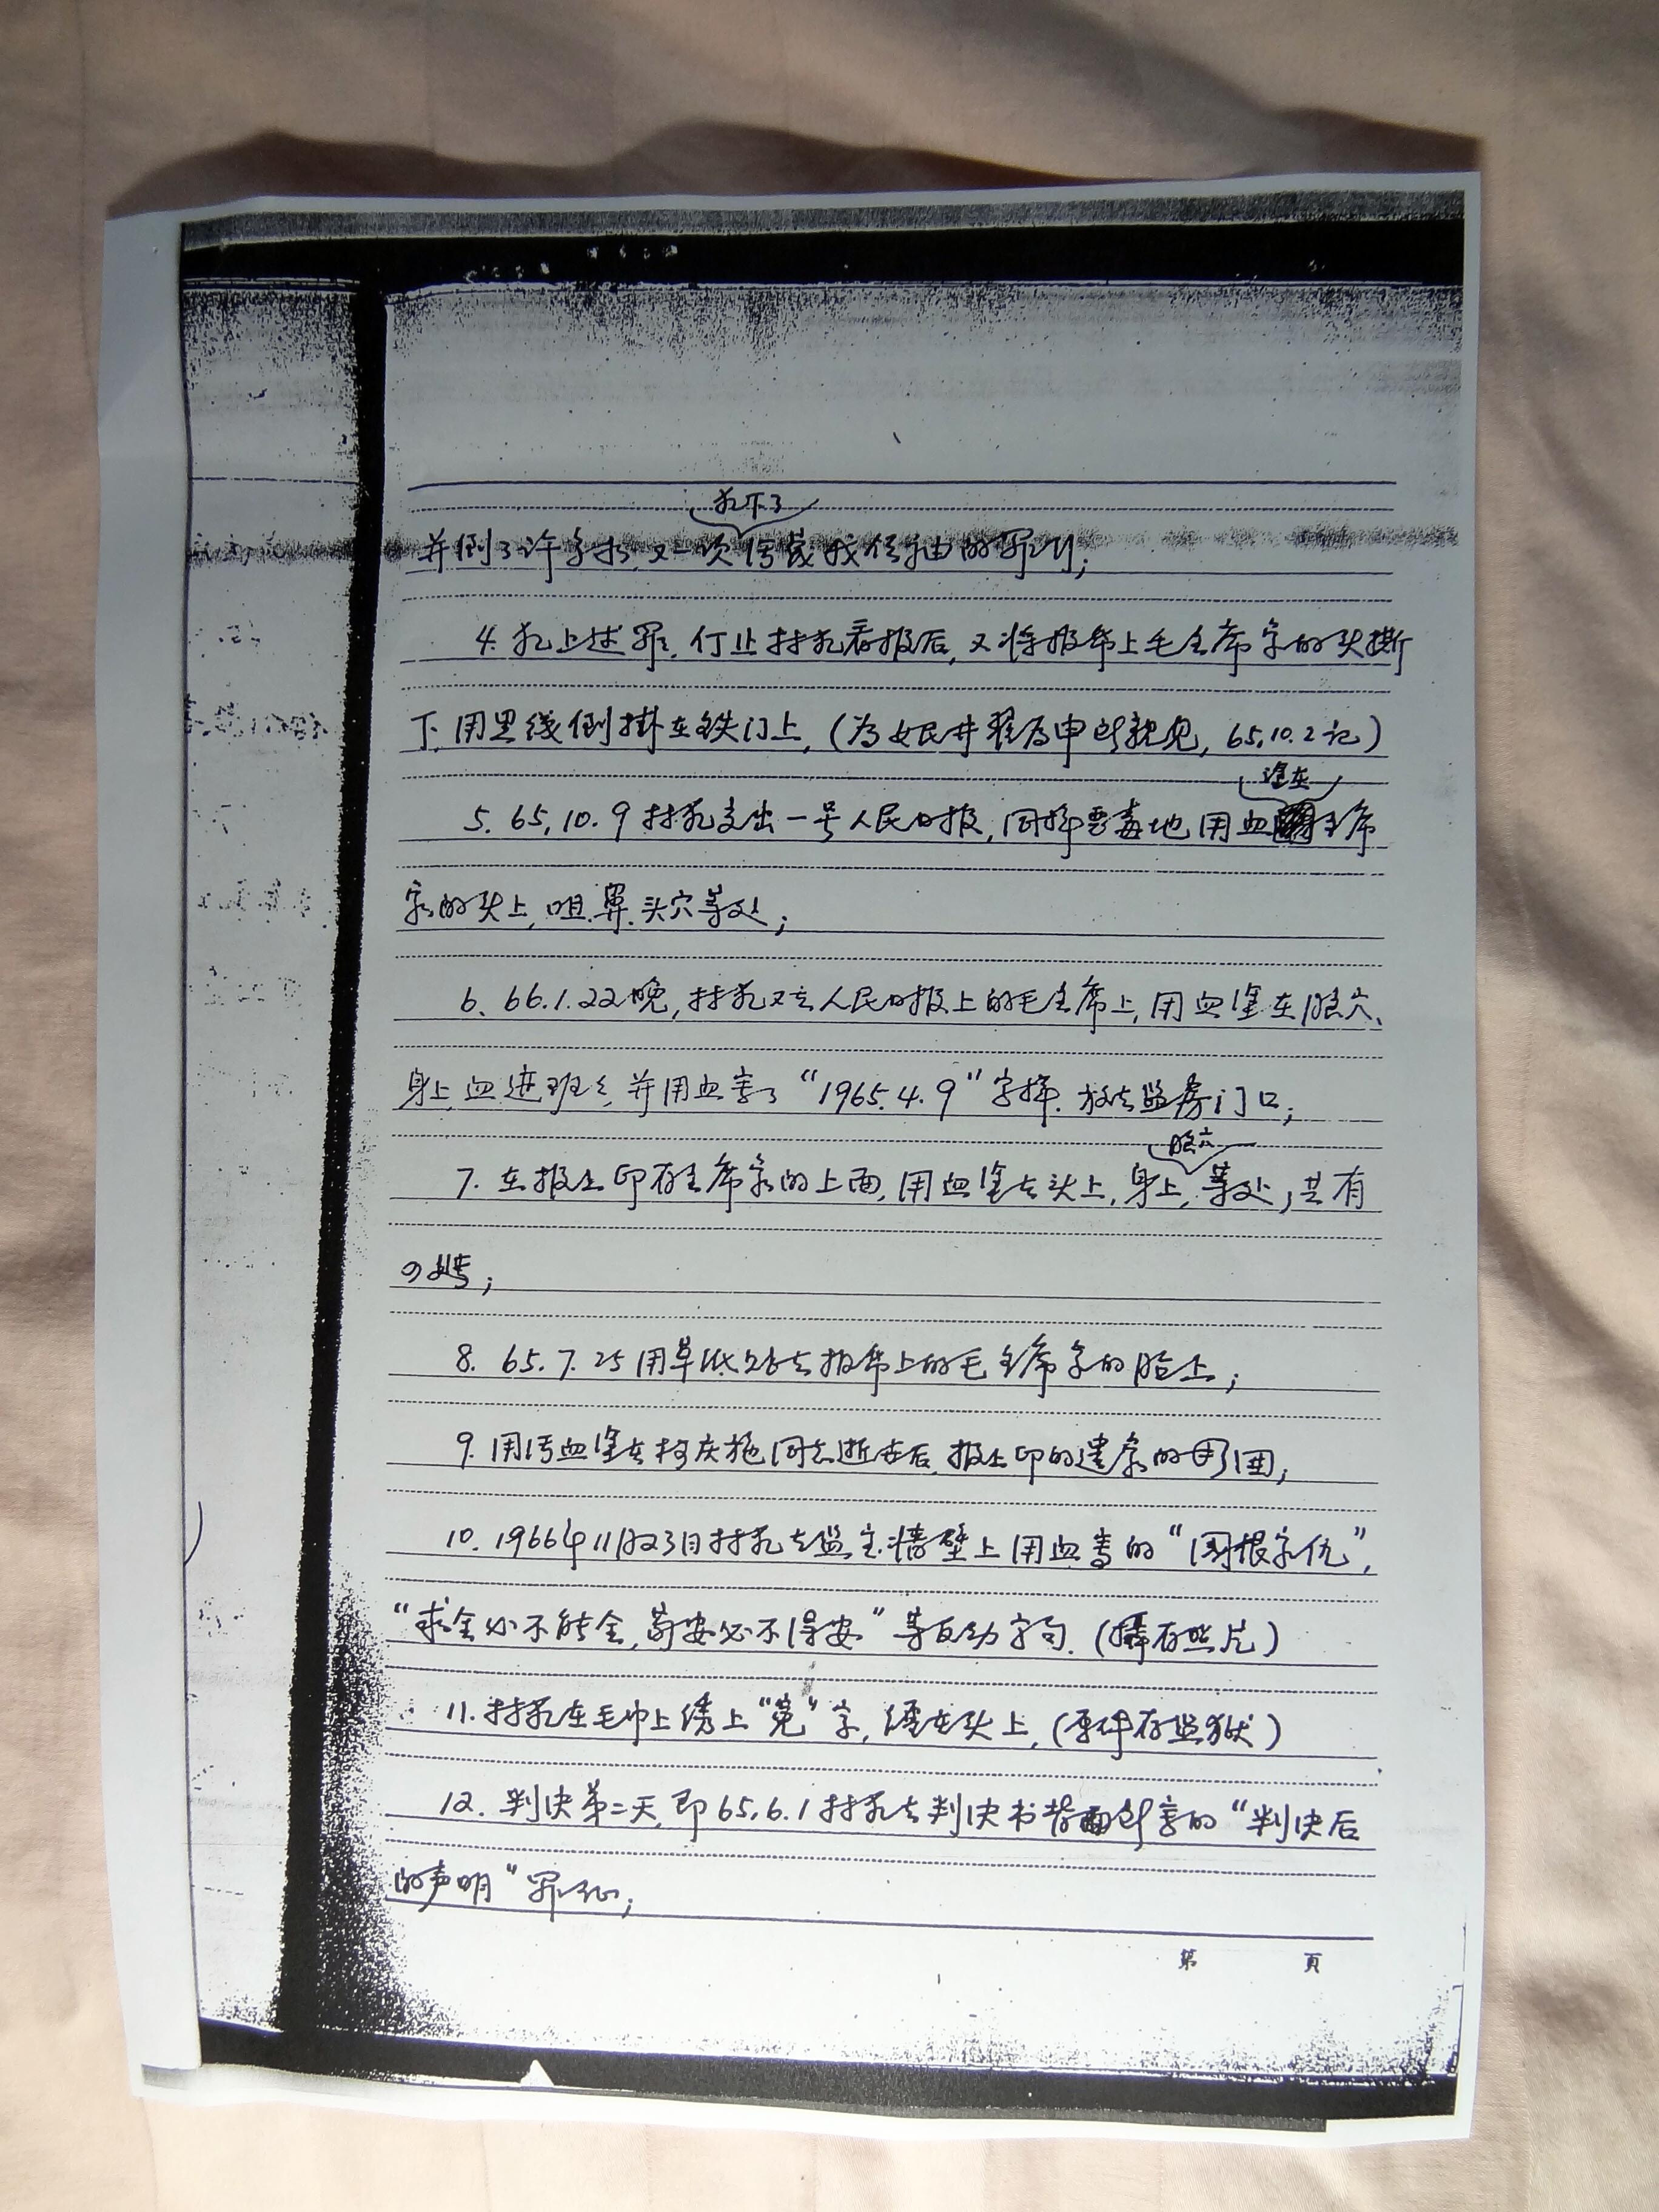 犯下了
并倒了许多 又一次污蔑我领袖的罪行;
4. 犯上述罪行 林犯看报后, 又将报纸上毛主席 的头撕
下, 用黑线倒掛在铁门上, (为女民井 所亲见, 65.10.2记)
涂在
5. 65.10.9 林犯交出一号人民日报, 同样恶毒地用血 主席
象的头上, 咀、鼻、头穴等处;
6. 66.1.22晚, 林犯又在人民日报上的毛主席上, 用血涂在 穴、
身上, 血迹班, 并用血写了“1965.4.9”字样. 放在监房门口;
7. 在报上印有主席象的上面, 用血涂在头上, 身上, 等处, 共有
;
8. 65.7.25 用草纸 在报纸上的毛主席象的脸上;
9. 用污血涂在柯庆施同志逝世后, 报上印的遗象的 围;
10. 1966年11月23日林犯在监室墙壁上用血写的“国恨家仇”,
“求全必不能全, 苟安必不得安”等反动字句. (摄有照片)
11. 林犯在毛巾上绣上“冤”字, 缠在头上, (原件存监狱)
12. 判决第二天, 即65.6.1林犯在判决书背面所写的“判决后
的声明”罪证;
第 頁